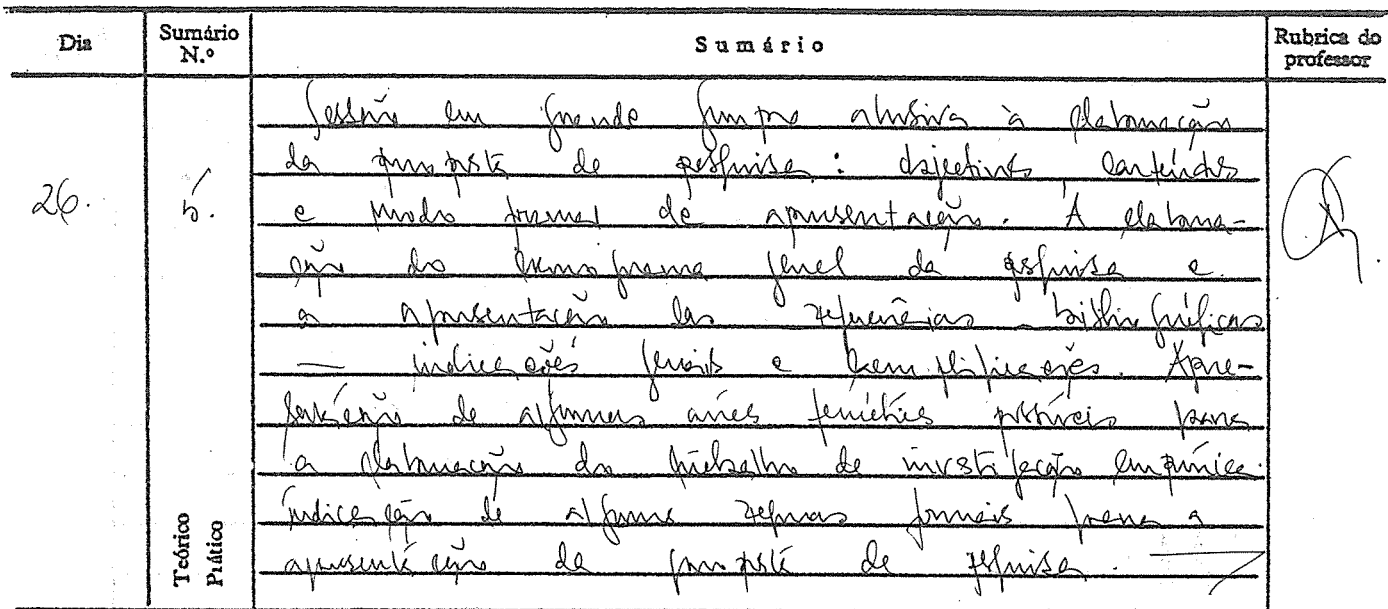 Dia
Sumário N.º
Sumário
Rubrica do professor
26.
5.
Sessão em grande grupo alusiva à elaboração
da proposta de pesquisa: objectivos conteúdos
e modo formal de apresentação. A elabora-
ção do cronograma geral da pesquisa e
a apresentação das referências bibliográficas
— indicações gerais e exemplificações. Apre-
sentação de algumas áreas temáticas possíveis para
a elaboração do trabalho de investigação empírica.
Indicação de algumas regras formais para a
apresentação da proposta de pesquisa.
Teórico
Prático